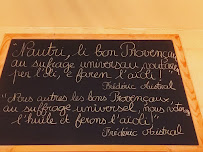 "Nautri, li bon Prouvençau
au sufrage universau
per l'òli, e faren l'aiòli!"
Frédéric Mistral
"Nous autres les bons Provençaux,
au suffrage universel, nous voterons
l'huile et ferons l'aïoli"
Frédéric Mistral